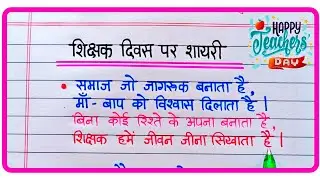 HAPPY
Teachers'
DAY
शिक्षक दिवस पर शायरी
• समाज जो जागरूक बनाता है,
माँ - बाप को विश्वास दिलाता है,
बिना कोई रिश्ते के अपना बनाता है,
शिक्षक हमें जीवन जीना सिखाता है।